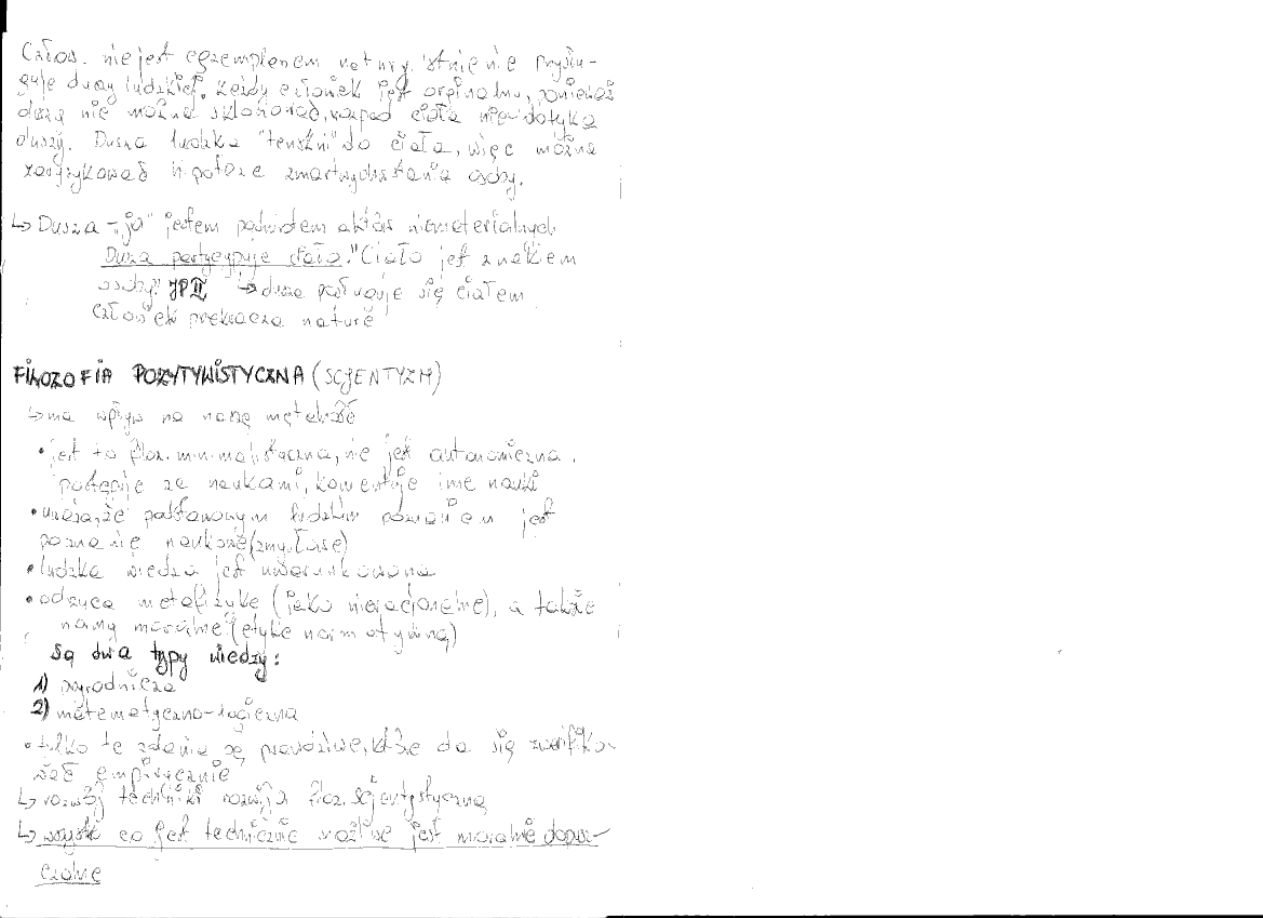 Człow. nie jest egzemplarzem natury. Istnienie przysłu-
guje duszy ludzkiej. Każdy człowiek jest oryginalny, ponieważ
duszą nie można sklonować, rozpad ciała nie dotyka
duszy. Dusza ludzka "tęskni" do ciała, więc można
zaryzykować hipotezę zmartwychwstania osoby.
↳ Dusza - "ja" jestem podmiotem aktów niematerialnych
Dusza partycypuje ciało. "Ciało jest znakiem
osoby" JPII ↳ dusza posługuje się ciałem
Człowiek przekracza naturę
FILOZOFIA POZYTYWISTYCZNA (SCJENTYZM)
↳ ma wpływ na naszą mentalność
• jest to filoz. minimalistyczna, nie jest autonomiczna.
postępuje za naukami, komentuje inne nauki
• uważa, że podstawowym ludzkim poznaniem jest
poznanie naukowe (zmysłowe)
• ludzka wiedza jest uwarunkowana
• odrzuca metafizykę (jako nieracjonalne), a także
normy moralne (etykę normatywną)
Są dwa typy wiedzy:
1) przyrodnicza
2) matematyczno-logiczna
• tylko te zdania są prawdziwe, które da się zweryfiko-
wać empirycznie
↳ rozwój techniki rozwija filoz. scjentystyczną
↳ wszystko co jest technicznie możliwe jest moralnie dopusz-
czalne